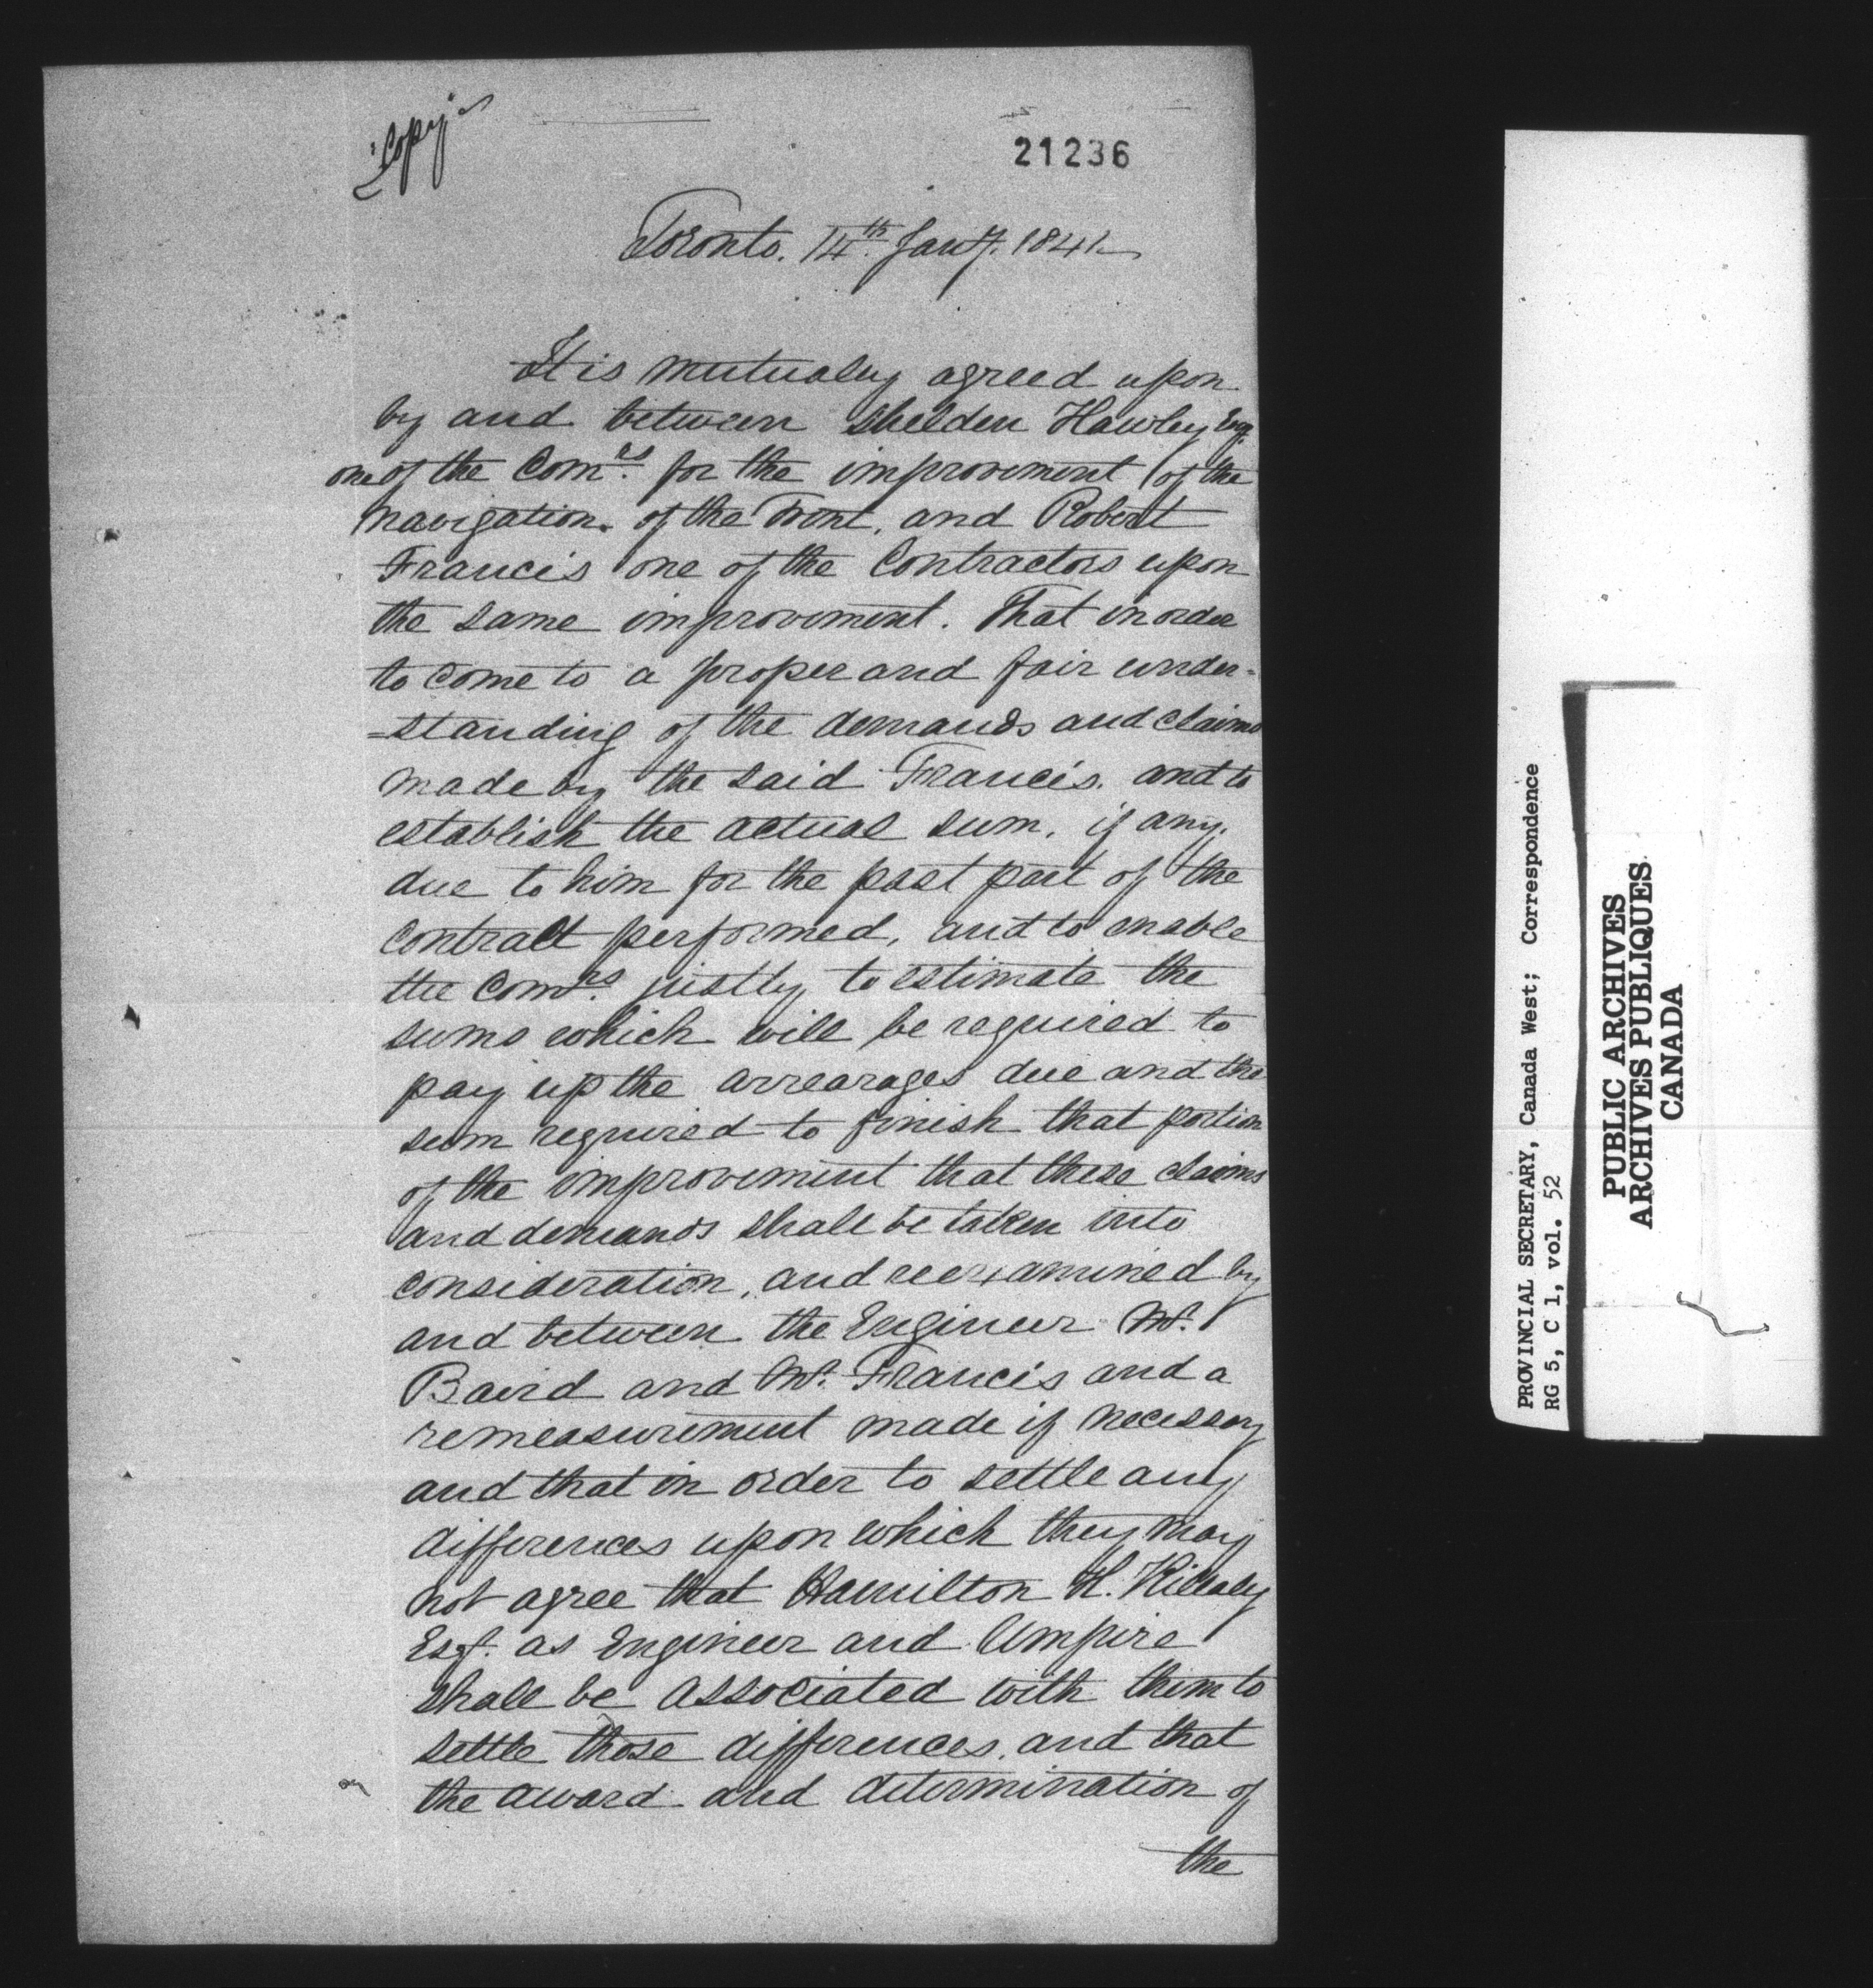 "Copy"
21236
Toronto. 14th Jany. 1841
It is mutualy agreed upon
by and between Shelden Hawley Esq.
one of the Comrs. for the improvement of the
Navigation of the Trent, and Robert
Francis one of the Contractors upon
the same improvement. That in order
to come to a proper and fair under-
=standing of the demands and claims
made by the said Francis. and to
establish the actual sum, if any,
due to him for the past part of the
Contract performed, and to enable
the Comrs. justly to estimate the
sums which will be required to
pay up the arrearages due and the
sum required to finish that portion
of the improvement that these claims
and demands shall be taken into
consideration, and reexamined by
and between the Engineer Mr.
Baird and Mr. Francis and a
remeasurement made if necessary
and that in order to settle any
differences upon which they may
not agree that Hamilton H. Killaly
Esqr. as Engineer and Umpire
shall be associated with them to
settle those differences. and that
the award and determination of
the
PROVINCIAL SECRETARY, Canada West; Correspondence
RG 5, C 1, vol. 52
PUBLIC ARCHIVES
ARCHIVES PUBLIQUES
CANADA